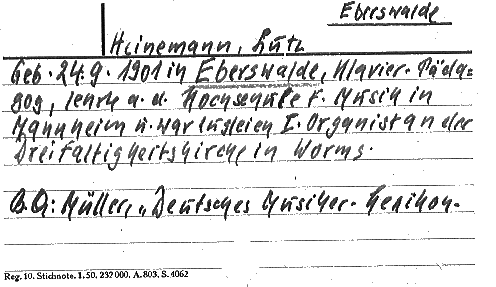 Eberswalde
Heinemann, Lutz
Geb. 24.9.1901 in Eberswalde, Klavier-Päda=
gog, lehrte a. d. Hochschule f. Musik in
Mannheim u. war zugleich I. Organist an der
Dreifaltigheitskirche in Worms.
B.Q: Müller, „Deutsches Musiker-Lexikon.
Reg. 10. Stichnote. 1. 50. 237000. A. 803. S. 4062